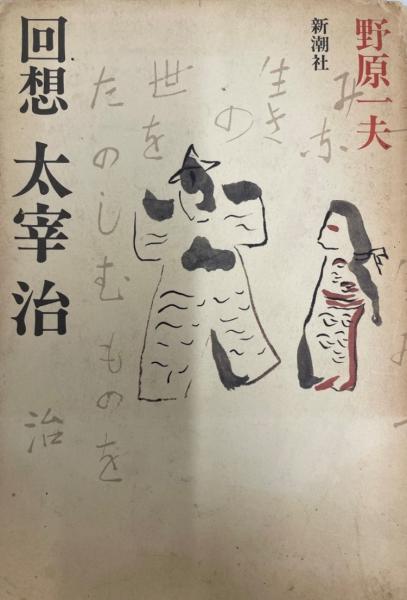 野原一夫
新潮社
回想 太宰 治
みな
生き
の
世を
たのしむものを
治